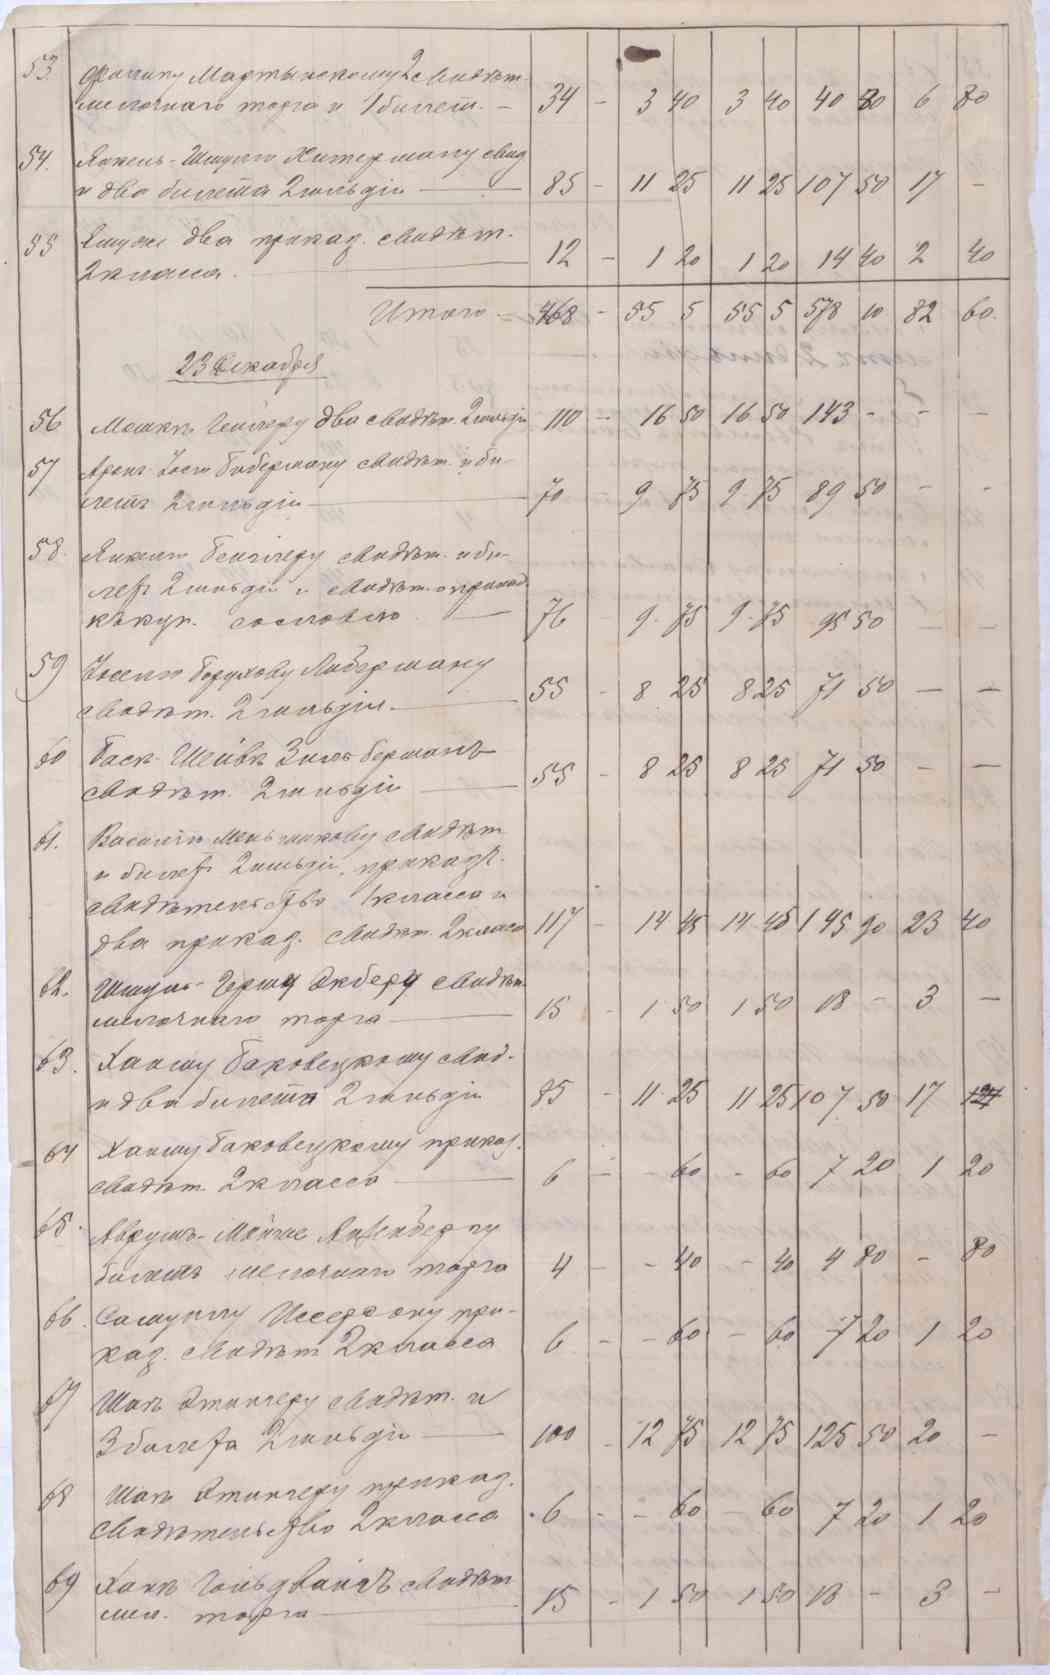 53. Филипу Мартынскому 2 свидѣт.
мелочнаго торга и 1 билет. — 34 — 3 40 3 40 40 80 6 80
54. Янкель-Шмулю Хитерману свид
и два билета 2 гильдіи — 85 — 11 25 11 25 107 50 17 —
55 Ему же два приказ. свидѣт.
2 класса. — 12 — 1 20 1 20 14 40 2 40
Итого — 468 — 55 5 55 5 578 10 82 60.
23 Декабря
56 Мошкѣ Гейлеру два свидѣт. 2 гильдіи 110 — 16 50 16 50 143 — — —
57 Аронъ Іось Либерману свидѣт. и би-
летъ 2 гильдіи — 70 — 9 75 9 75 89 50 — —
58. Янкелю свидѣт. и би-
летъ 2 гильдіи и свидѣт. о приказ.
къ куп. сословію — 76 — 9 75 9 75 95 50 — —
59 Іоселю Борухову Либерману
свидѣт. 2 гильдіи. — 55 — 8 25 8 25 71 50 — —
60 Шейвѣ Зильберманъ
свидѣт. 2 гильдіи — 55 — 8 25 8 25 71 50 — —
61. Василію Меньшикову свидѣт
и билетъ 2 гильдіи, приказч.
свидѣтельство 1 класса и
два приказ. свидѣт. 2 класса 117 — 14 45 14 45 145 90 23 40
62. Шмуль-Гершу Экберу свидѣт.
мелочнаго торга — 15 — 1 50 1 50 18 — 3 —
63. Хаиму Баковецкому свид.
и два билета 2 гильдіи 85 — 11 25 11 25 107 50 17
64 Хаиму Баковецкому приказ.
свидѣт. 2 класса — 6 — — 60 — 60 7 20 1 20
65. Аврумъ-Мойше
билетъ мелочнаго торга 4 — — 40 — 40 4 80 — 80
66. Самуилу при-
каз. свидѣт 2 класса 6 — — 60 — 60 7 20 1 20
67 Этингеру свидѣт. и
3 билета 2 гильдіи — 100 — 12 75 12 75 125 50 20 —
68 Этингеру приказ.
свидѣтельство 2 класса 6 — — 60 — 60 7 20 1 20
69 Хаикѣ свидѣт
мел. торга — 15 — 1 50 1 50 18 — 3 —